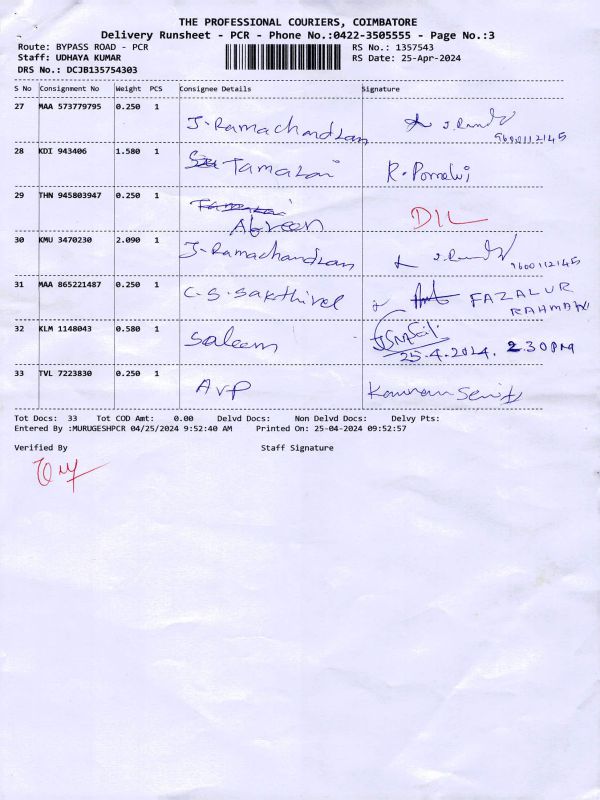 THE PROFESSIONAL COURIERS, COIMBATORE
Delivery Runsheet - PCR - Phone No.:0422-3505555 - Page No.:3
Route: BYPASS ROAD - PCR RS No.: 1357543
Staff: UDHAYA KUMAR RS Date: 25-Apr-2024
DRS No.: DCJB135754303
S No Consignment No Weight PCS Consignee Details Signature
27 MAA 573779795 0.250 1 J. Ramachandran 9600112145
28 KDI 943406 1.580 1 Tamarai R. Ponnalvi
29 THN 945803947 0.250 1 Afreen DIL
30 KMU 3470230 2.090 1 J. Ramachandran 9600112145
31 MAA 865221487 0.250 1 C.S. Sakthivel FAZALUR RAHMAN
32 KLM 1148043 0.580 1 Saleem 25.4.2024. 2 30PM
33 TVL 7223830 0.250 1 AVP
Tot Docs: 33 Tot COD Amt: 0.00 Delvd Docs: Non Delvd Docs: Delvy Pts:
Entered By :MURUGESHPCR 04/25/2024 9:52:40 AM Printed On: 25-04-2024 09:52:57
Verified By Staff Signature